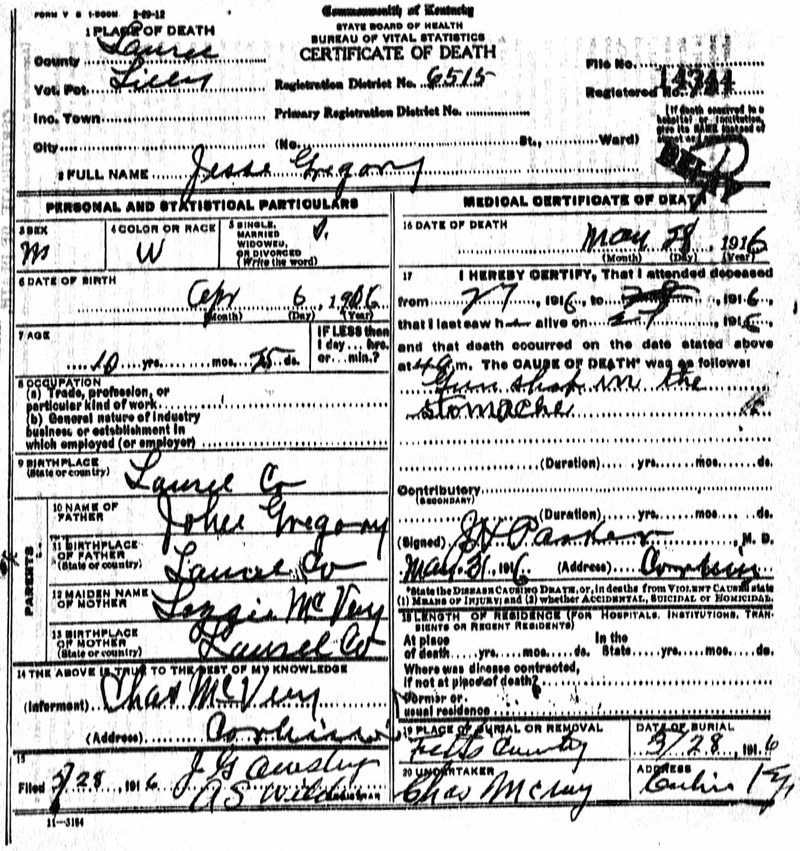 FORM V S 1-500M 2-29-12
Commonwealth of Kentucky
STATE BOARD OF HEALTH
BUREAU OF VITAL STATISTICS
CERTIFICATE OF DEATH
1 PLACE OF DEATH
County Laurel
Vot. Pct. Lilly
Registration District No. 6515
File No.
Registered No. 14344
Inc. Town
Primary Registration District No.
City (No. St., Ward)
(If death occurred in a
hospital or institution,
give its NAME instead of
street and number.)
2 FULL NAME Jesse Gregory
PERSONAL AND STATISTICAL PARTICULARS
3 SEX
M
4 COLOR OR RACE
W
5 SINGLE, MARRIED WIDOWED, OR DIVORCED (Write the word)
S.
6 DATE OF BIRTH
Apr 6, 1906
(Month) (Day) (Year)
7 AGE
10 yrs. mos. 25 ds.
IF LESS than
1 day... hrs.
or... min.?
8 OCCUPATION
(a) Trade, profession, or
particular kind of work
(b) General nature of industry
business or establishment in
which employed (or employer)
9 BIRTHPLACE
(State or country) Laurel Co
PARENTS
10 NAME OF
FATHER John Gregory
11 BIRTHPLACE
OF FATHER
(State or country) Laurel Co
12 MAIDEN NAME
OF MOTHER Lizzie McVey
13 BIRTHPLACE
OF MOTHER
(State or country) Laurel Co
14 THE ABOVE IS TRUE TO THE BEST OF MY KNOWLEDGE
(Informant) Chas McVey
(Address)
15
Filed 5/28, 1916
REGISTRAR
11-3184
MEDICAL CERTIFICATE OF DEATH
16 DATE OF DEATH
May 28, 1916
(Month) (Day) (Year)
17 I HEREBY CERTIFY, That I attended deceased
from 27, 1916, to 28, 1916,
that I last saw h alive on 27, 1916,
and that death occurred on the date stated above
at 4 a.m. The CAUSE OF DEATH* was as follows:
Gun shot in the
stomache
(Duration) yrs. mos. ds.
Contributory
(SECONDARY)
(Duration) yrs. mos. ds.
(Signed) Parker, M. D.
May 31, 1916 (Address) Corbin
*State the DISEASE CAUSING DEATH, or, in deaths from VIOLENT CAUSES state
(1) MEANS OF INJURY; and (2) whether ACCIDENTAL, SUICIDAL or HOMICIDAL.
18 LENGTH OF RESIDENCE (FOR HOSPITALS, INSTITUTIONS, TRAN-
SIENTS OR RECENT RESIDENTS)
At place In the
of death yrs. mos. ds. State yrs. mos. ds.
Where was disease contracted,
if not at place of death?
Former or
usual residence
19 PLACE OF BURIAL OR REMOVAL
DATE OF BURIAL
5/28, 1916
20 UNDERTAKER
Chas McVey
ADDRESS
Corbin Ky